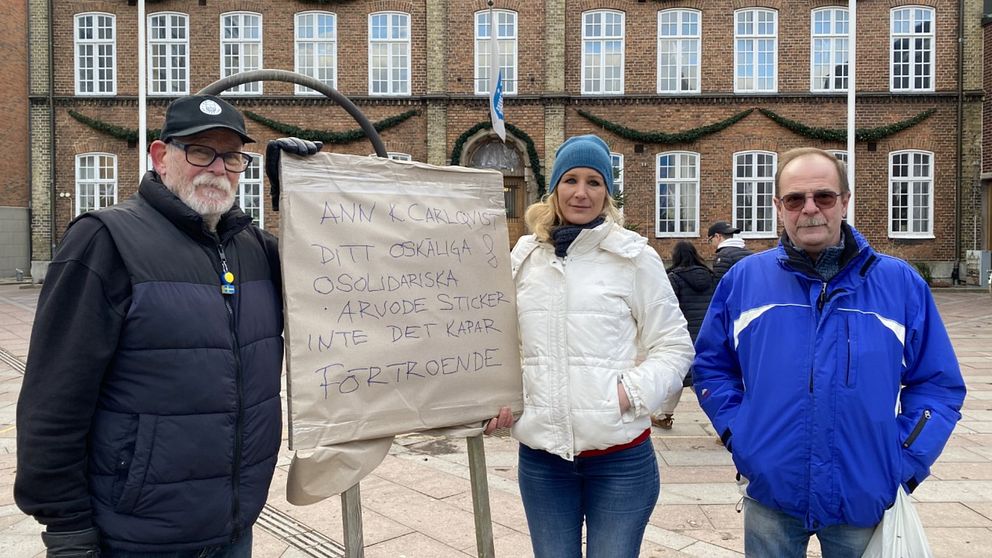 ANN K CARLQVIST
DITT OSKÄLIGA &
OSOLIDARISKA
ARVODE STICKER
INTE DET KAPAR
FÖRTROENDE